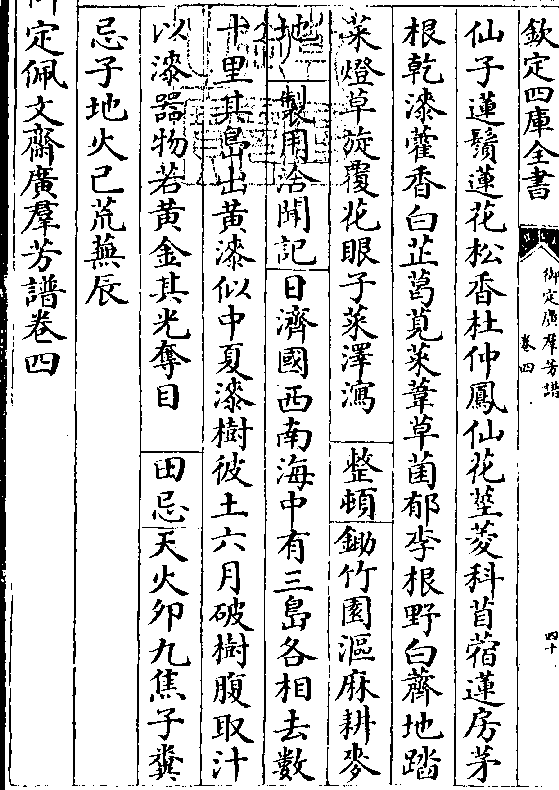 欽定四庫全書
御定廣羣芳譜
卷四
四十
仙子蓮鬚蓮花松香杜仲鳳仙花莖菱科苜蓿蓮房茅
根乾漆藿香白芷葛莧菜葦草菌郁李根野白薺地踏
菜燈草旋覆花眼子菜澤瀉 整頓鋤竹園漚麻耕麥
地 製用洽聞記日濟國西南海中有三島各相去數
十里其島出黃漆似中夏漆樹彼土六月破樹腹取汁
以漆器物若黃金其光奪目 田忌天火卯九焦子糞
忌子地火巳荒蕪辰
御定佩文齋廣羣芳譜卷四